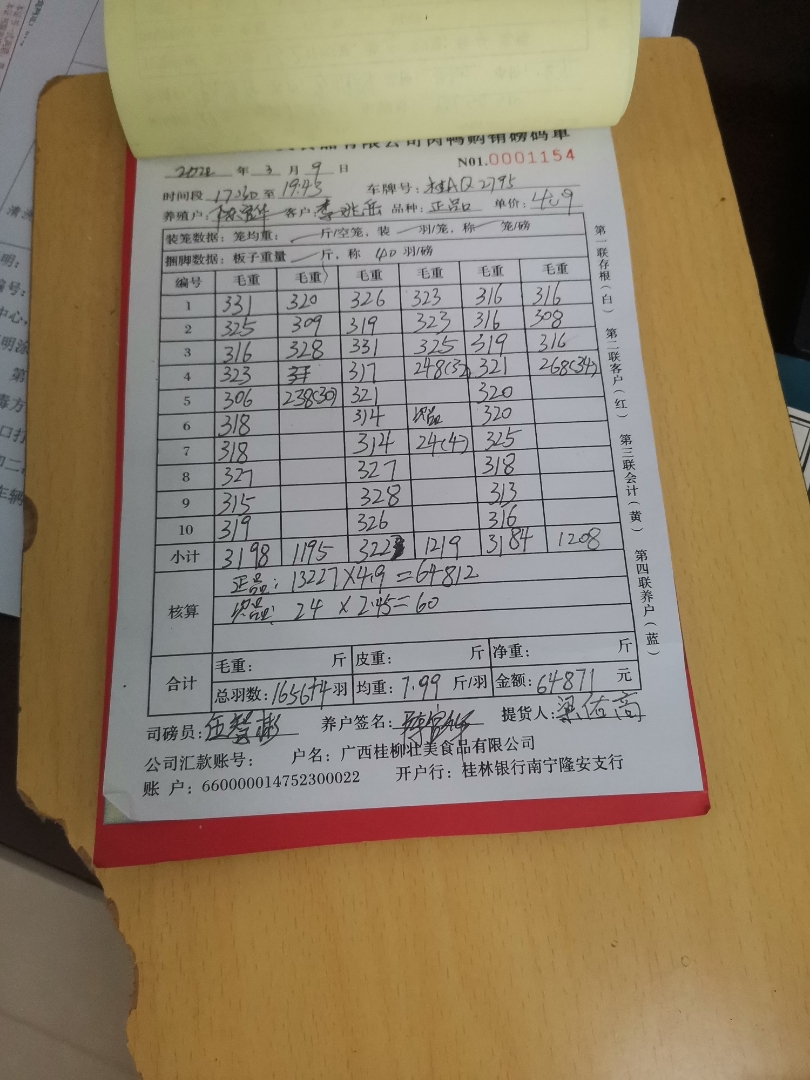 食品有限公司肉鸭购销磅码单
2022 年 3 月 9 日 N01.0001154
时间段 17:20 至 19:45 车牌号: 桂AQ2795
养殖户: 客户: 品种: 正品 单价: 4.9
装笼数据: 笼均重: 斤/空笼, 装 羽/笼, 称 笼/磅
捆脚数据: 板子重量 斤, 称 40 羽/磅
编号 毛重 毛重 毛重 毛重 毛重 毛重
1 331 320 326 323 316 316
2 325 309 319 323 316 308
3 316 328 331 325 319 316
4 323 317 248(32) 321 268(34)
5 306 238(30) 321 320
6 318 314 次品 320
7 318 314 24(4) 325
8 327 327 318
9 315 328 313
10 319 326 316
小计 3198 1195 3223 1219 3184 1208
核算
正品: 13227×4.9=64812
次品: 24 × 2.45=60
合计
毛重: 斤 皮重: 斤 净重: 斤
总羽数: 1656+4 羽 均重: 7.99 斤/羽 金额: 64871 元
司磅员: 养户签名: 提货人: 梁佑高
公司汇款账号: 户名: 广西桂柳壮美食品有限公司
账 户: 660000014752300022 开户行: 桂林银行南宁隆安支行
第一联存根(白) 第二联客户(红) 第三联会计(黄) 第四联养户(蓝)